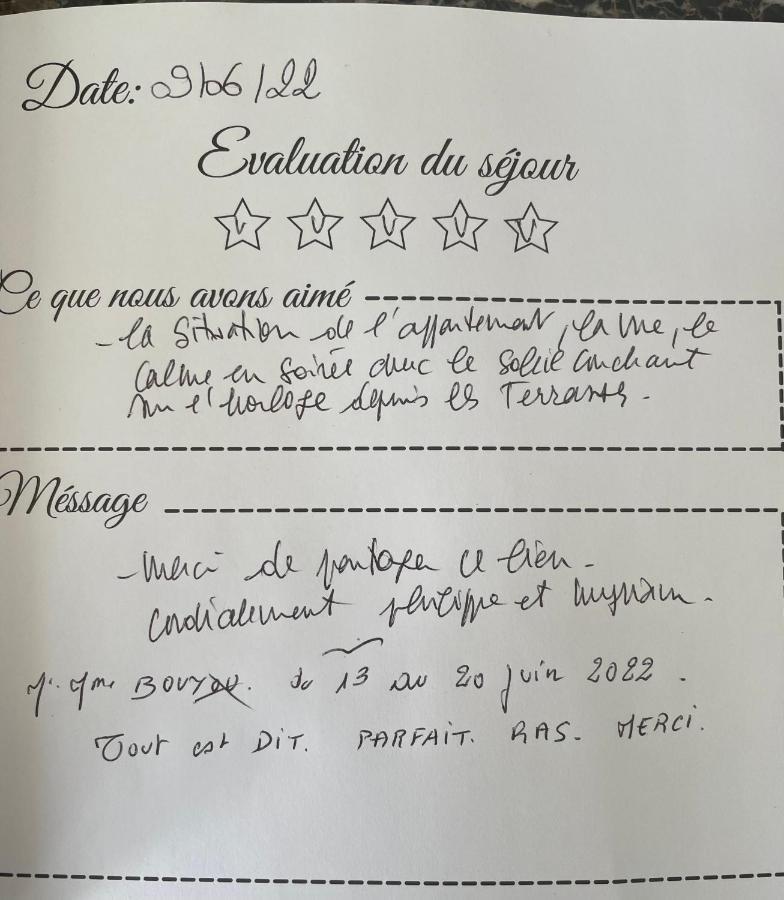 Date: 9/06/22
Evaluation du séjour
Ce que nous avons aimé
- la situation de l'appartement, la vue, le
calme en soirée avec le soleil couchant
sur l'horloge depuis les Terrasses.
Méssage
- Merci de partager ce bien -
cordialement philippe et
Mr. Mme du 13 au 20 juin 2022.
Tout est DIT. PARFAIT. RAS. MERCI.